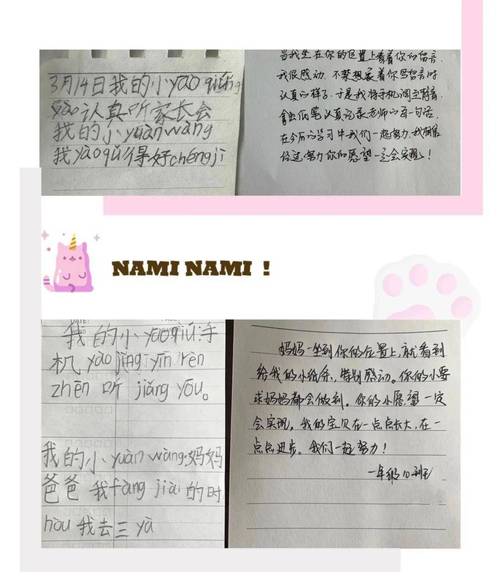 3月14日我的小yāo qiú
yào认真听家长会
我的小yuàn wàng
我yào qǔ得好chéng jì
当我坐在你的位置上看着你的留言，
我很感动，不禁想象着你写留言时
认真的样子，于是我将手机调至静音，
拿出纸笔认真记录老师的每一句话，
在今后的学习中我们一起努力，我相信
经过努力你的愿望一定会实现！
NAMI NAMI !
我的小yāo qiú：手
机yào jìng yīn rèn
zhēn听jiǎng
我的小yuàn wàng：妈妈
爸爸我fàng jià的时
hòu我去三yà
妈妈一坐到你的位置上，就看到
给我的小纸条，特别感动。你的小要
求妈妈都会做到。你的小愿望一定
会实现，我的宝贝在一点点长大，在一
点点进步。我们一起努力！
一年级10班